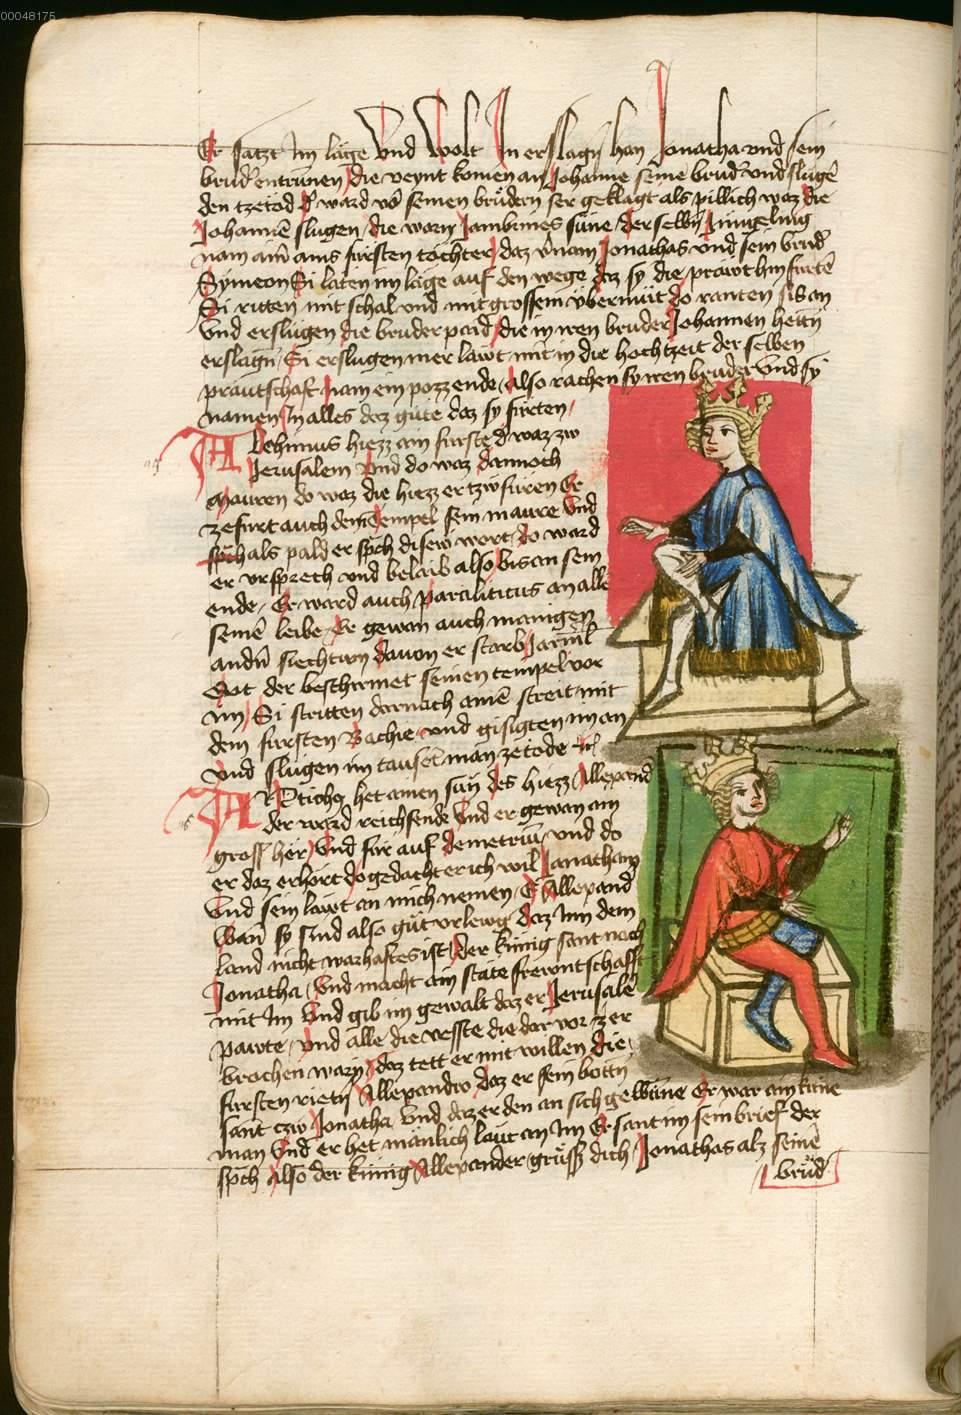 00048175
Er satzt Im läge Vnd Wolt In erslagn han Jonatha vnd sein
brud' entrünen die veynt komen an Johanne seine brud' vnd slugē
den tzetod d' ward vō seinen brüdern ser geklagt als pillich waz die
Johannē slugen / die warn Jambrines süne / derselbn Jüngeling
nam ain ains fürsten tochter / daz v'nam Jonathas vnd sein brud'
Symeon Si laten im läge auf den wege daz sy die prawt hin furtē
Si ritten mit schal vnd mit grossem übermüt do ranten sis an
Vnd erslugen die bruder paid / die in iren bruder Johannen hettn
erslagn / Si erslugen mer lawt mit in die hochtzeit der selben
prautschaft nam ein pozz ende / Also rachen sy iren bruder Vnd sy
namen In alles daz gute daz sy furten /
Alchimus hiezz ain furste d' waz zw
Jerusalem vnd do waz dannoch
Mauren do waz die hiezz er tzwfüren Er
zefurt auch dem Tempel sein maure Vnd
sp̄ch als pald er sp̄ch disew wort / do ward
er vrsprech vnd belaib also bis an sein
ende / Er ward auch paraliticus an alle
seinē leibe / Er gewan auch manigen
andn siechtum dauon er starb Jarīnl
Got der beschirmet seinen tempel vor
im / Si stritten darnach ainē streit mit
dem fursten Bachie vnd gisigten im an
vnd slugen im tausēt man ze tode
Anticho het ainen sun des hiezz Allexand
der ward reichsende Vnd er gewan ain
gross her / Vnd fur auf demetriū vnd do
er daz erhort do gedacht er ich wil Janatham
Vnd sein lawt an mich nemen / E Allexand
Wan sy sind also gut vrlewg daz Inn dem
land nicht warhaftes ist / der künig sant noch
Jonatha / Vnd macht ain state frewntschafft
mit Im Vnd gib im gewalt daz er Jerusalē
pawte / vnd alle die vesste die dar vor zer
brochen warn / daz tett er mit willen die
fursten rietn Allexandro daz er sein bottn
sant czw Jonatha Vnd daz er den an sich gewüne Er war ain kune
man Vnd er het manlich laut an Im Er sant im sein brief der
sp̄ch Also der künig Allexander grüsst dich Jonathas alz seinē
brüd'